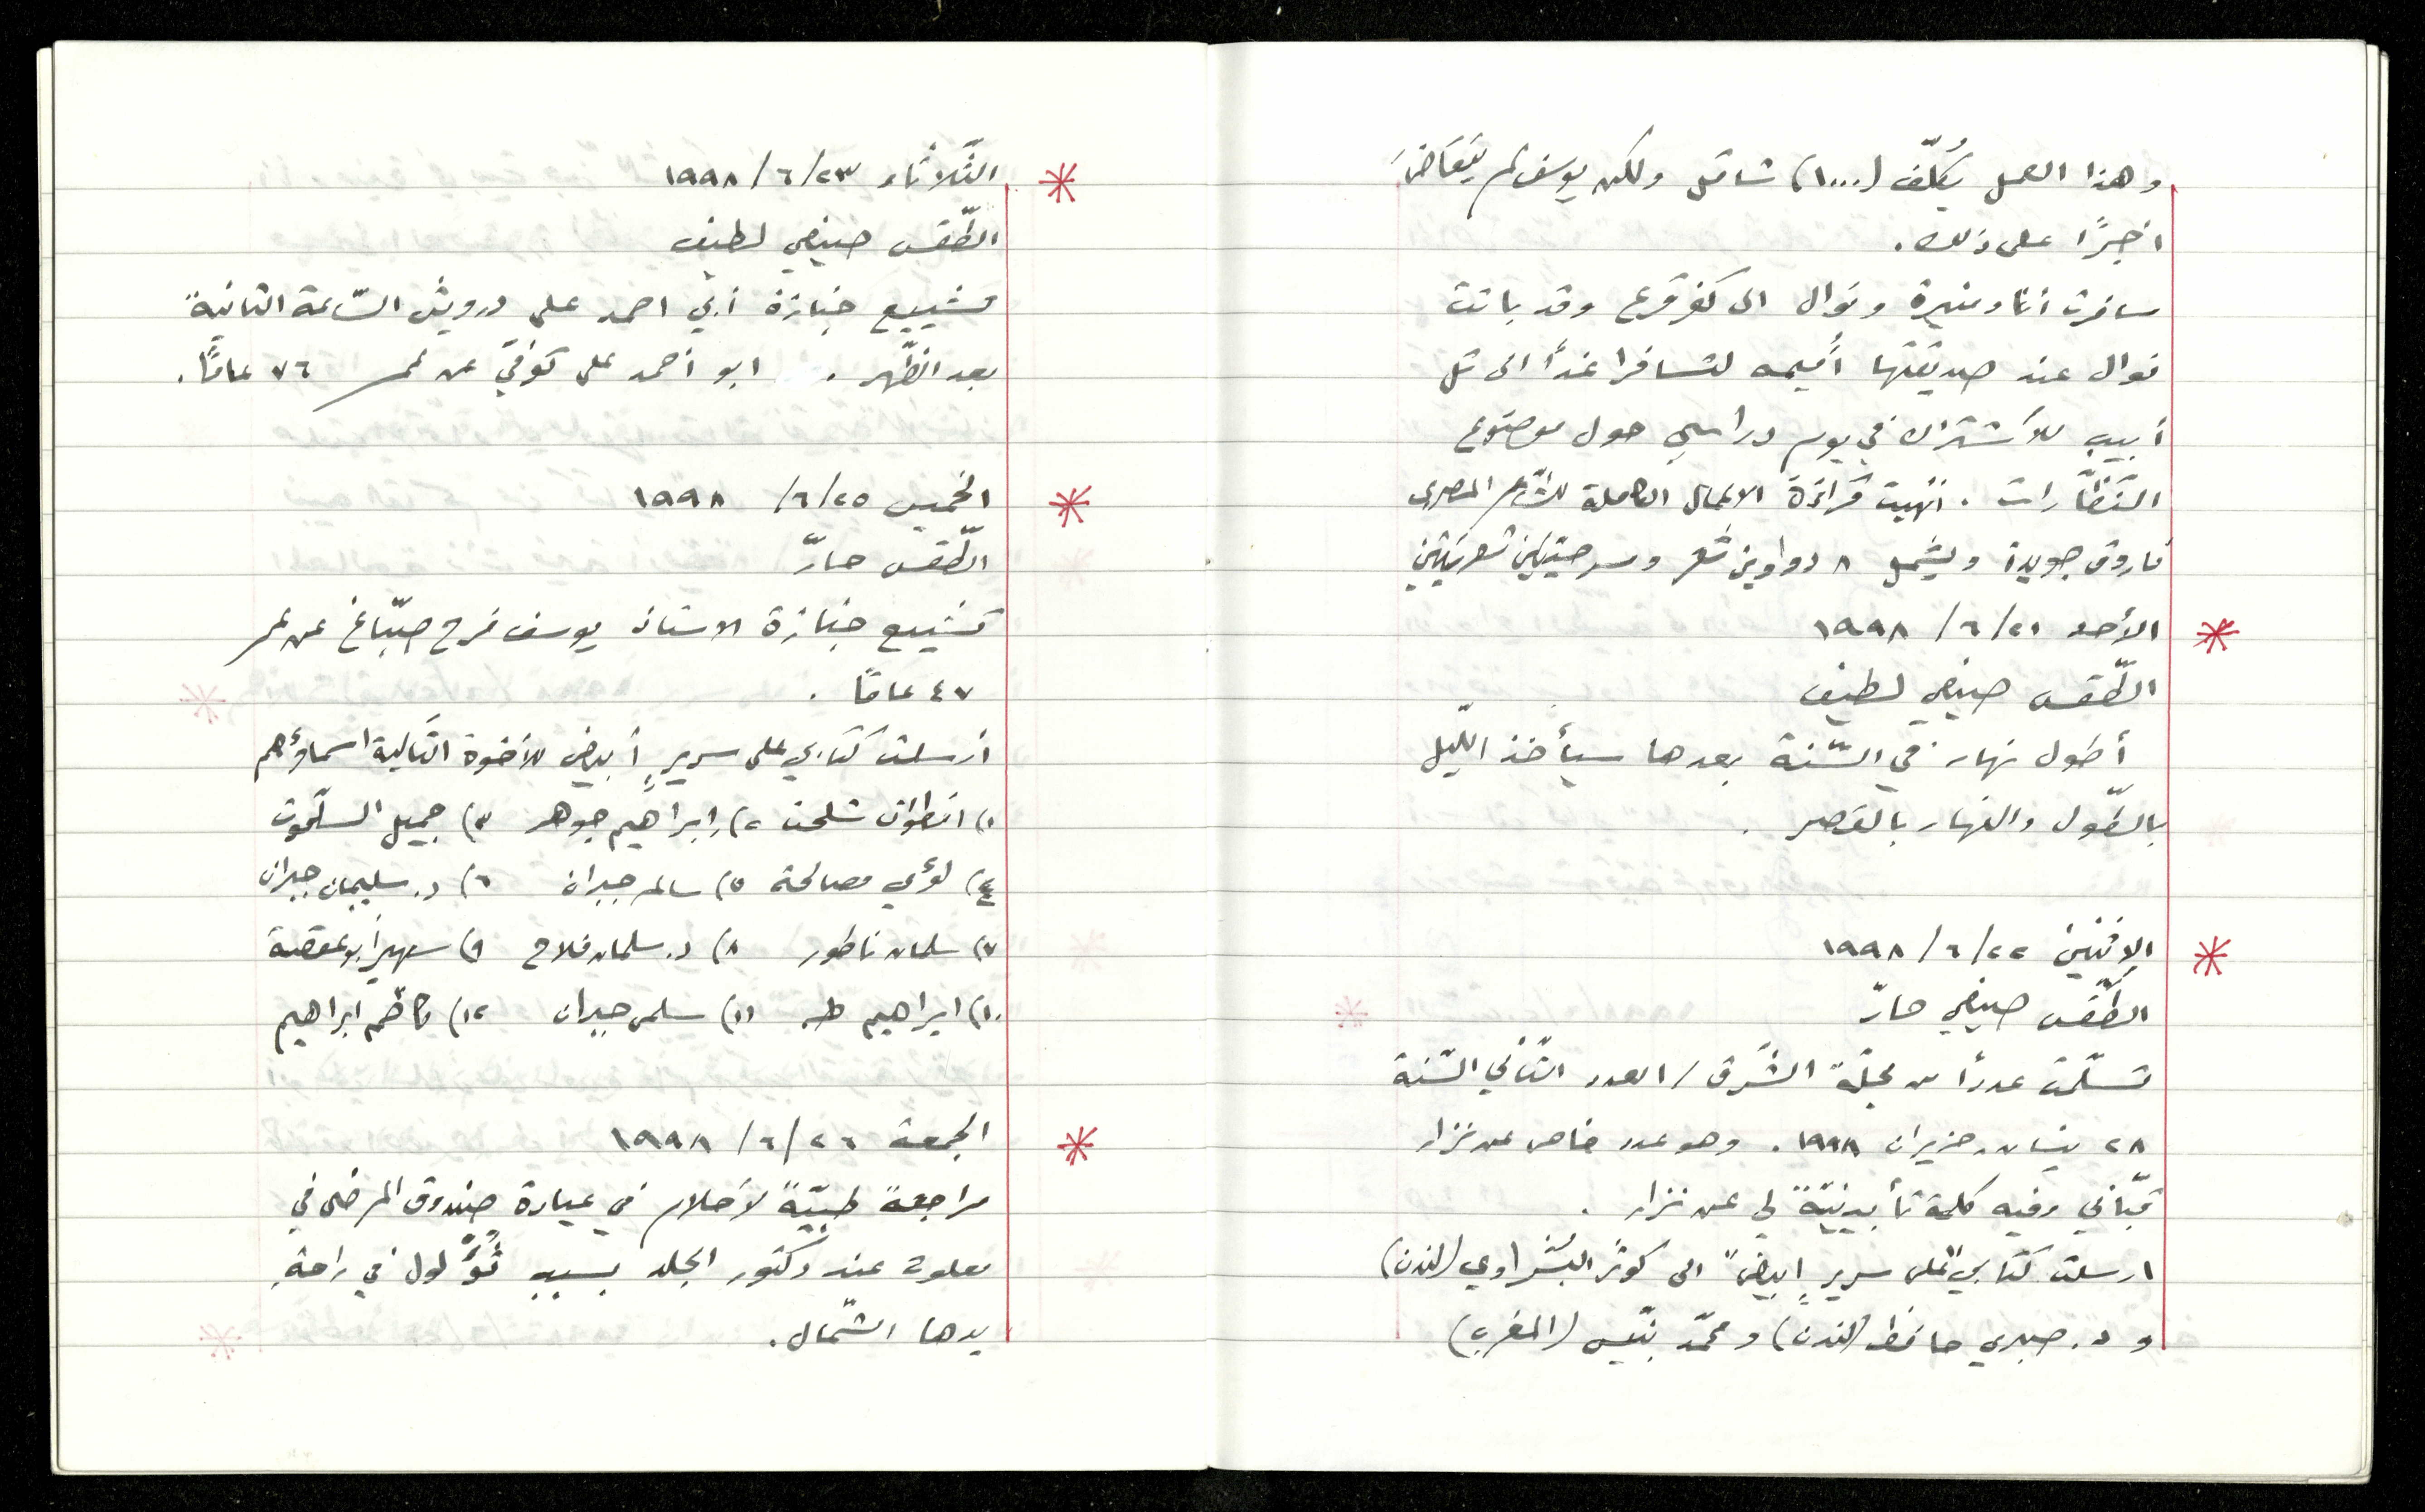 وهذا العمل يُكلّف (١٠٠٠) شاقل ولكن يوسف لم يتقاضَ
اجرًا على ذلك.
سافرت أنا ومنيرة ونوال الى كفر قرع وقد باتت
نوال عند صديقتها أُميمه لتسافرا غدًا الى تل
أبيب للاشتراك في يوم دراسي حول موضوع
النّظّارات . انهيت قراءة الاعمال الكاملة للشّاعر المصري
فاروق جويدة ويشمل ٨ دواوين شعر ومسرحيتين شعريتين
* الأحد ٢١/٦/ ١٩٩٨
الطّقس صيفي لطيف
أطول نهار في السّنة بعدها سيأخذ اللّيل
بالطّول والنهار بالقصر .
* الإثنين ٢٢/٦/١٩٩٨
الطّقس صيفي حارّ
تسلّمت عددًا من مجلّة الشّرق / العدد الثّاني السّنة
٢٨ نيسان - حزيران ١٩٩٨. وهو عدد خاص عن نزار
قبّاني وفيه كلمة تأبينيّة لي عن نزار .
ارسلت كتابي "على سريرٍ ابيض" الى كوثر البشراوي (لندن)
و د. صبري حافظ (لندن) و محمّد بنّيس (المغرب)
* الثّلاثاء ٢٣/٦/١٩٩٨
الطّقس صيفي لطيف
تشييع جنازة أبي احمد علي درويش السّاعة الثانية
بعد الظّهر . ابو أحمد علي توفي عن عمر ٧٦ عامًا.
* الخميس ٢٥/٦/ ١٩٩٨
الطّقس حارّ
تشييع جنازة الاستاذ يوسف فرح صبّاغ عن عمر
٤٧ عامًا .
أرسلت كتابي على سريرٍ أبيض للأخوة التّالية اسماؤهم
١) انطوان شلحت ٢) إبراهيم جوهر ٣) جميل السلحوت
٤) لؤي مصالحة ٥) سالم جبران ٦) د. سليمان جبران
٧) سلمان ناطور ٨) د. سلمان فلاح ٩) سهير أبو عقصة
١٠) ابراهيم طه ١١) سلمى جبران ١٢) كاظم ابراهيم
* الجمعة ٢٦/٦/ ١٩٩٨
مراجعة طبيّة لأحلام في عيادة صندوق المرضى في
معلوت عند دكتور الجلد بسبب ثؤلول في راحة
يدها الشّمال.